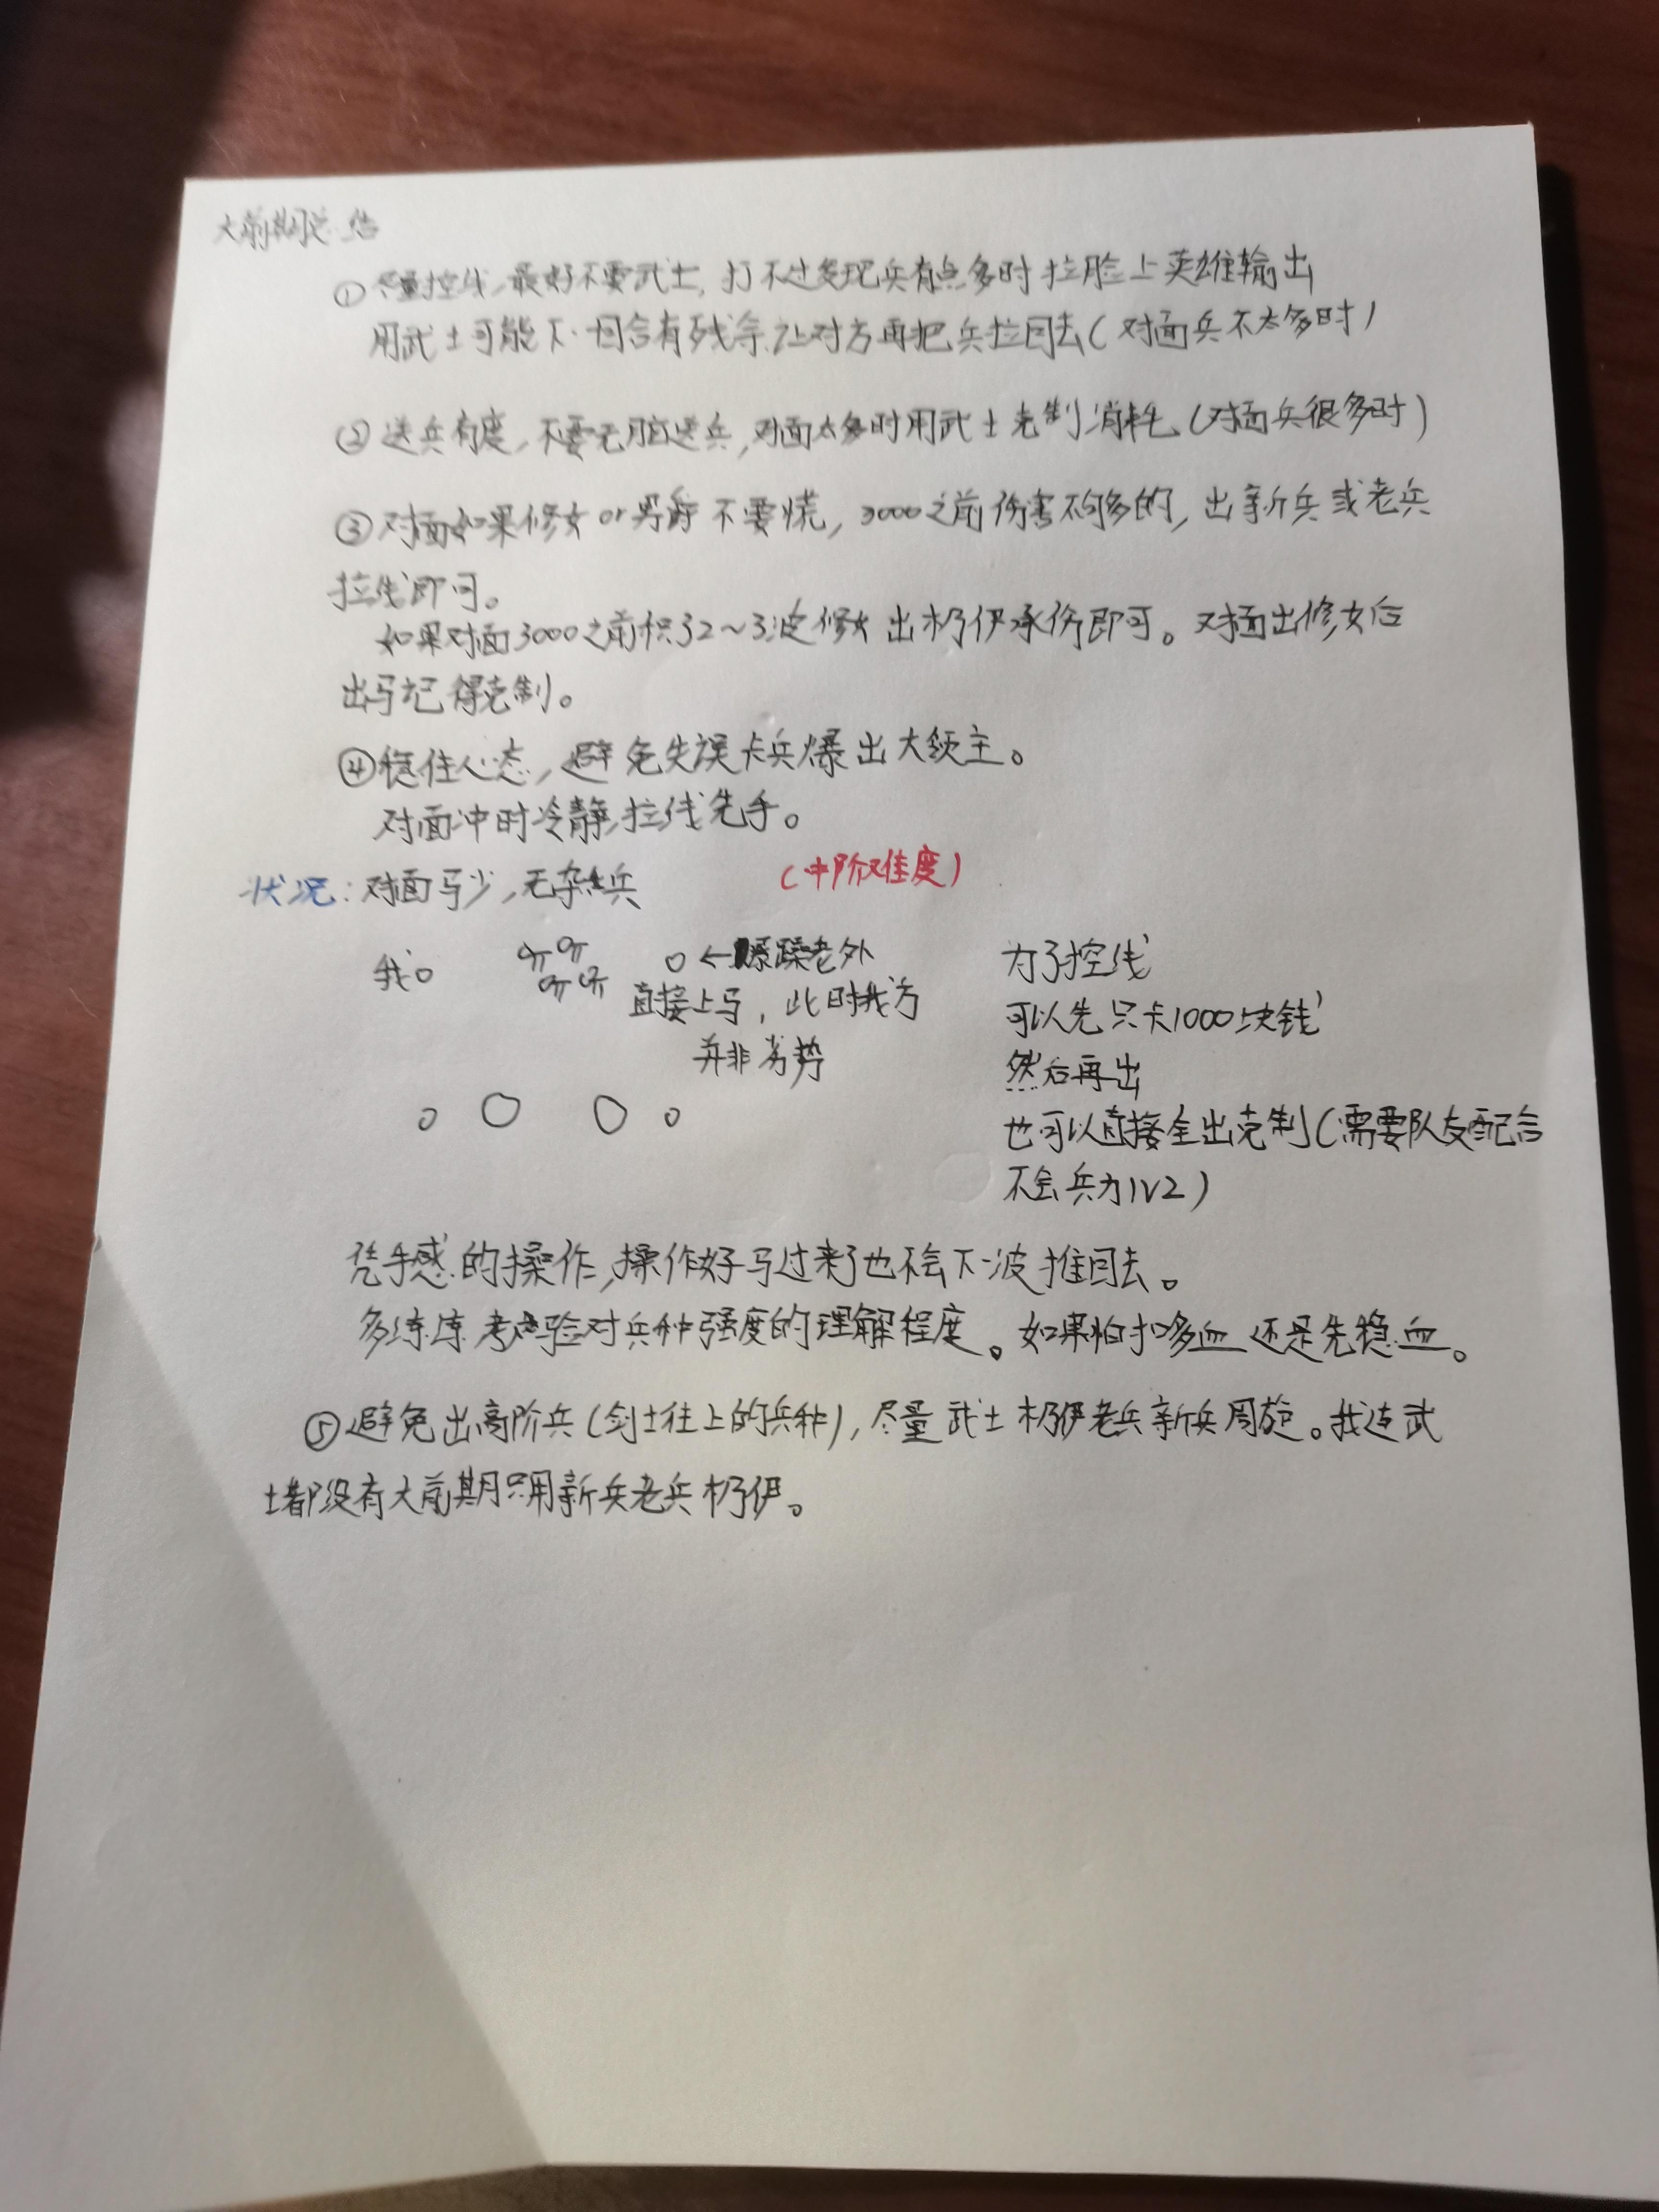 大前期总结
①尽量控线,最好不要武士,打不过发现兵有点多时拉脸上英雄输出
用武士可能下一回合有残余让对方再把兵拉回去(对面兵不太多时)
②送兵有度,不要无脑送兵,对面太多时用武士克制消耗(对面兵很多时)
③对面如果修女or男爵不要慌,3000之前伤害不够多的,出新兵或老兵
拉线即可。
如果对面3000之前积了2~3波修女出扔伊承伤即可。对面出修女后
出马记得克制。
④稳住心态,避免失误卡兵爆出大领主。
对面冲时冷静,拉线先手。
(中阶难度)
状况:对面马少,无杂兵
我 ←暴躁老外
直接上马,此时我方
并非劣势
为了控线
可以先只卡1000块钱
然后再出
也可以直接全出克制(需要队友配合
不会兵力1V2)
凭手感的操作,操作好马过来了也不会下一波推回去。
多练练考验对兵种强度的理解程度。如果怕扣多血还是先稳血。
⑤避免出高阶兵(剑士往上的兵种),尽量武士扔伊老兵新兵周旋。我连武
士都没有大前期只用新兵老兵扔伊。